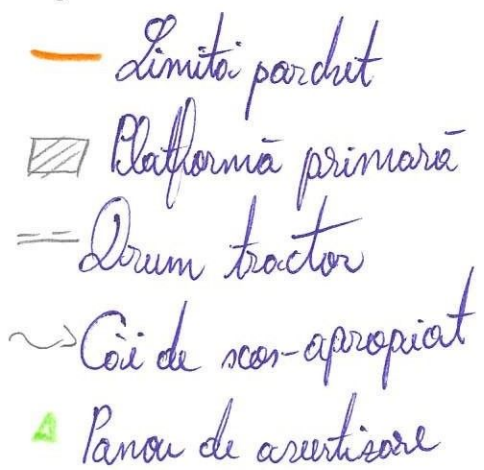 Limită parchet
Platformă primară
Drum tractor
Căi de scos-apropiat
Panou de avertizare